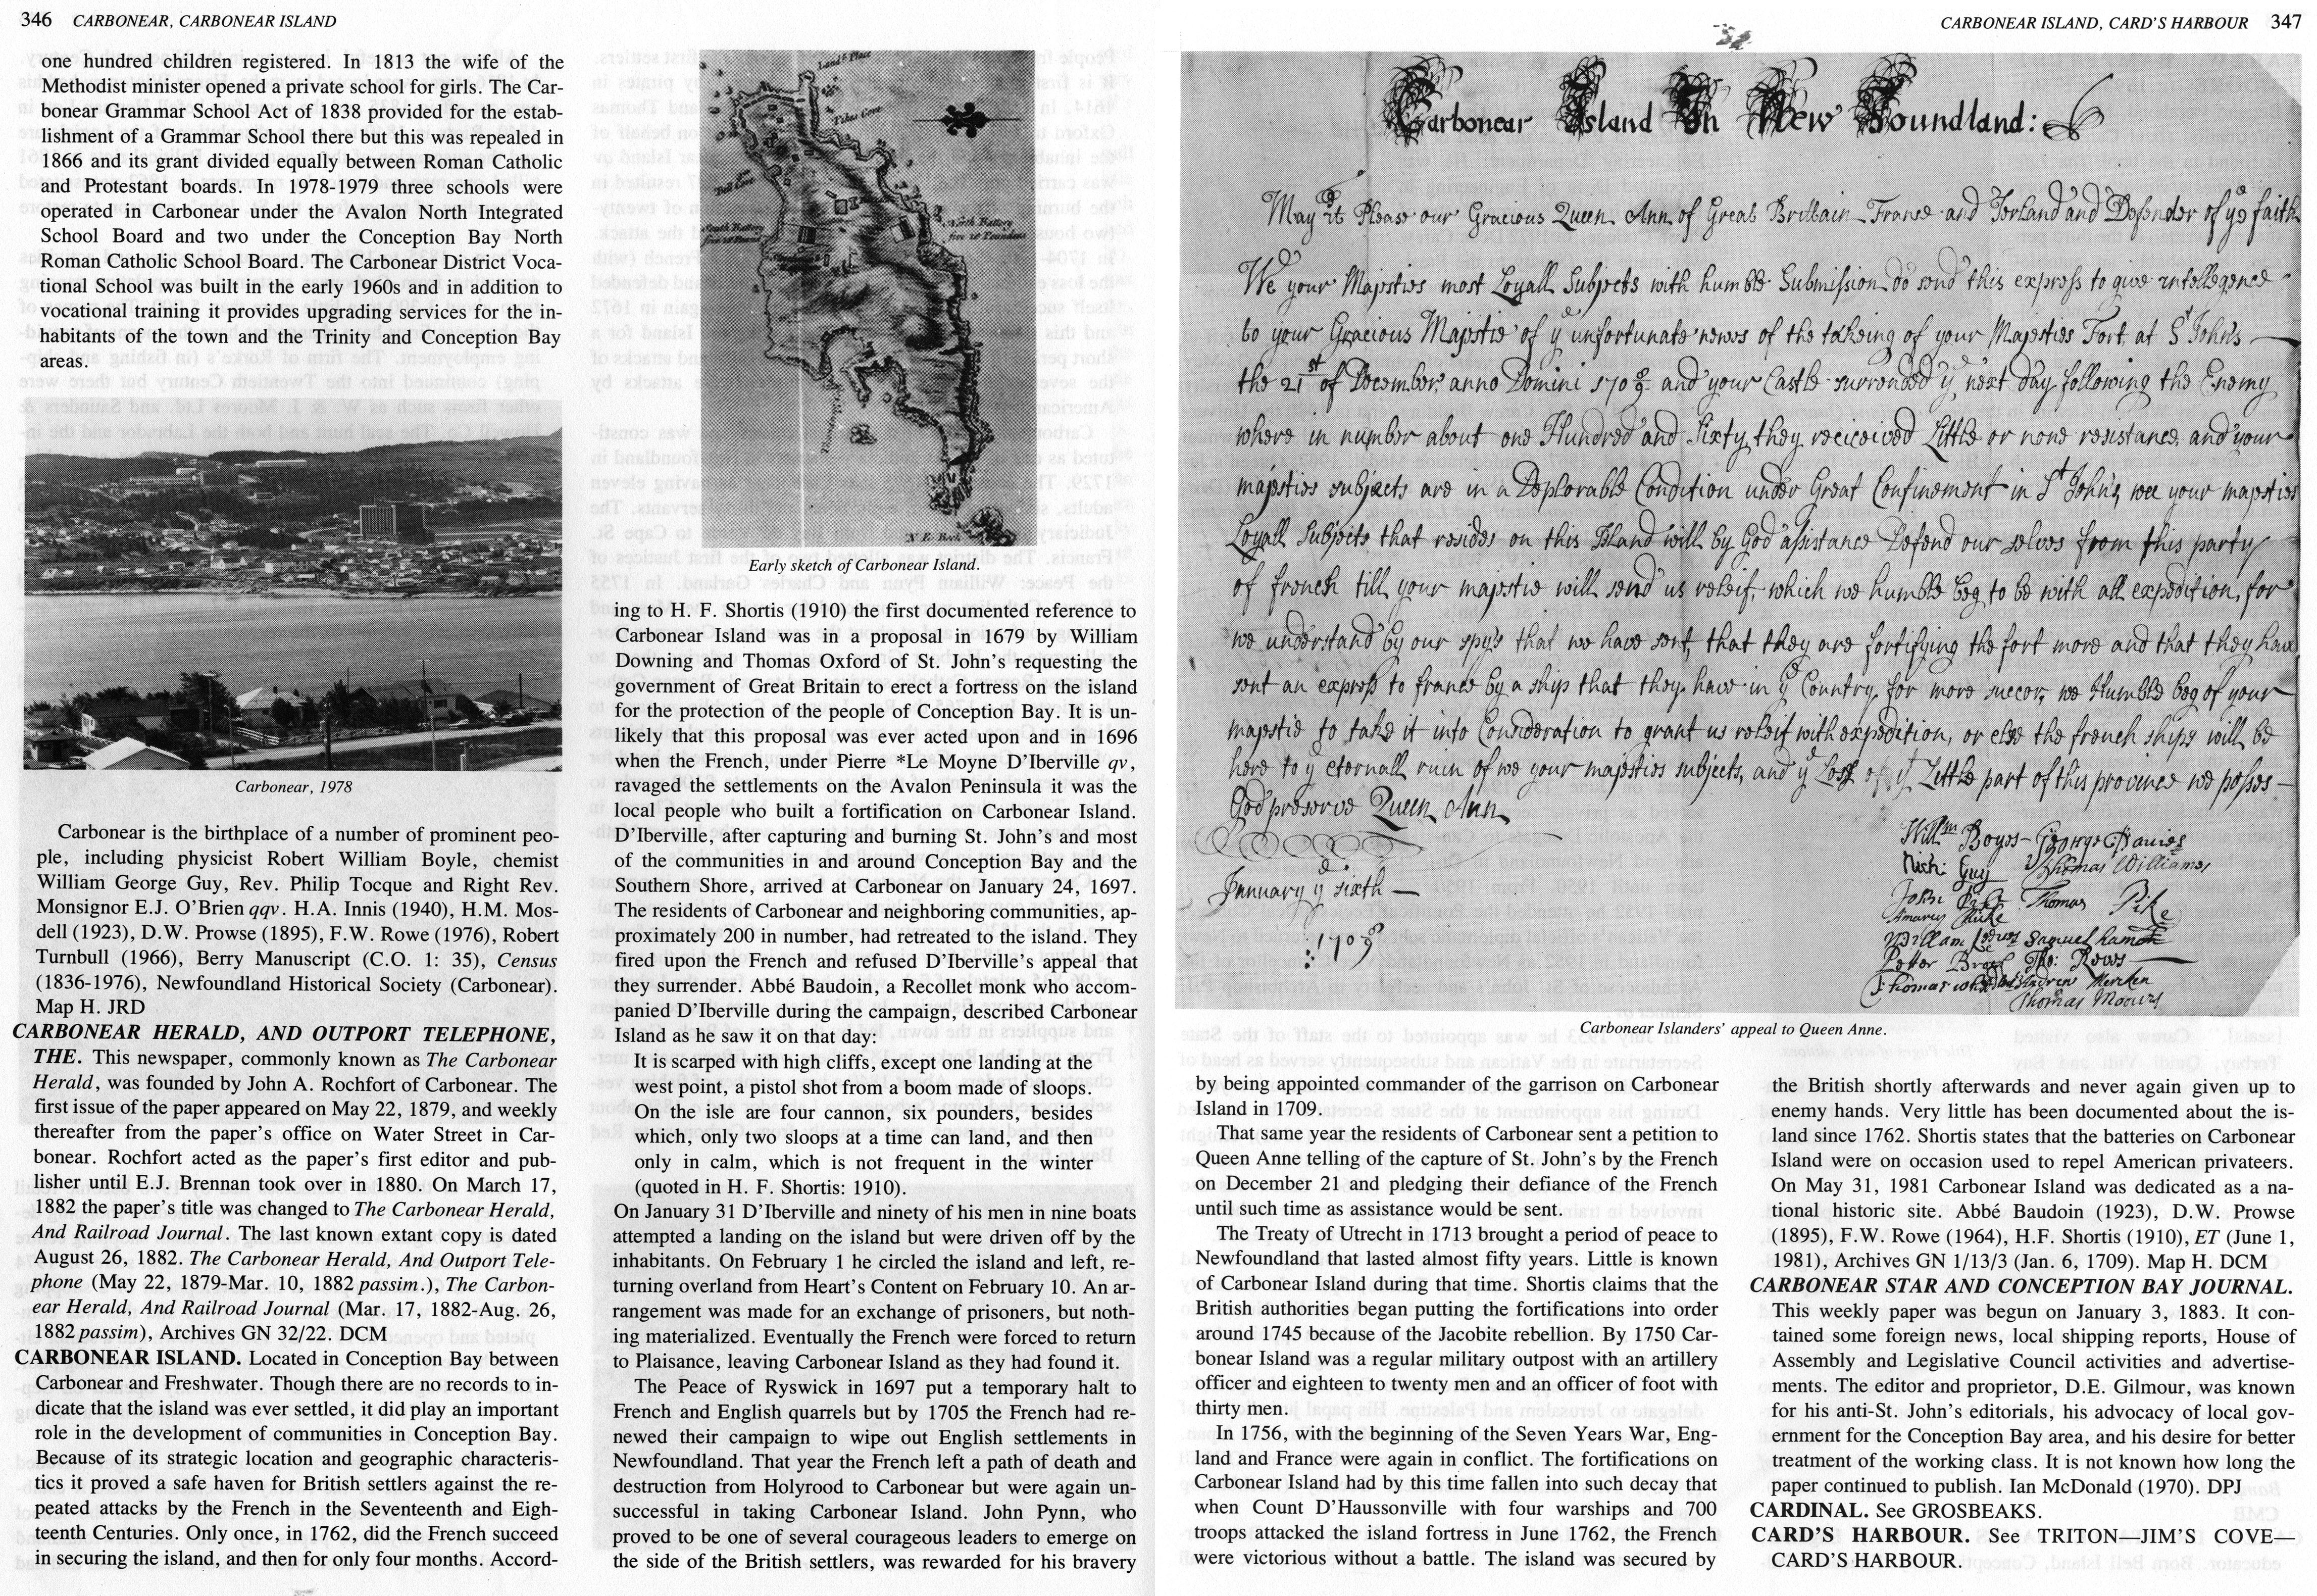 346 CARBONEAR, CARBONEAR ISLAND
one hundred children registered. In 1813 the wife of the
Methodist minister opened a private school for girls. The Car-
bonear Grammar School Act of 1838 provided for the estab-
lishment of a Grammar School there but this was repealed in
1866 and its grant divided equally between Roman Catholic
and Protestant boards. In 1978-1979 three schools were
operated in Carbonear under the Avalon North Integrated
School Board and two under the Conception Bay North
Roman Catholic School Board. The Carbonear District Voca-
tional School was built in the early 1960s and in addition to
vocational training it provides upgrading services for the in-
habitants of the town and the Trinity and Conception Bay
areas.
Carbonear, 1978
Carbonear is the birthplace of a number of prominent peo-
ple, including physicist Robert William Boyle, chemist
William George Guy, Rev. Philip Tocque and Right Rev.
Monsignor E.J. O'Brien qqv. H.A. Innis (1940), H.M. Mos-
dell (1923), D.W. Prowse (1895), F.W. Rowe (1976), Robert
Turnbull (1966), Berry Manuscript (C.O. 1: 35), Census
(1836-1976), Newfoundland Historical Society (Carbonear).
Map H. JRD
CARBONEAR HERALD, AND OUTPORT TELEPHONE,
THE. This newspaper, commonly known as The Carbonear
Herald, was founded by John A. Rochfort of Carbonear. The
first issue of the paper appeared on May 22, 1879, and weekly
thereafter from the paper's office on Water Street in Car-
bonear. Rochfort acted as the paper's first editor and pub-
lisher until E.J. Brennan took over in 1880. On March 17,
1882 the paper's title was changed to The Carbonear Herald,
And Railroad Journal. The last known extant copy is dated
August 26, 1882. The Carbonear Herald, And Outport Tele-
phone (May 22, 1879-Mar. 10, 1882 passim.), The Carbon-
ear Herald, And Railroad Journal (Mar. 17, 1882-Aug. 26,
1882 passim), Archives GN 32/22. DCM
CARBONEAR ISLAND. Located in Conception Bay between
Carbonear and Freshwater. Though there are no records to in-
dicate that the island was ever settled, it did play an important
role in the development of communities in Conception Bay.
Because of its strategic location and geographic characteris-
tics it proved a safe haven for British settlers against the re-
peated attacks by the French in the Seventeenth and Eigh-
teenth Centuries. Only once, in 1762, did the French succeed
in securing the island, and then for only four months. Accord-
Lands Place
Pikes Cove
Bell Cove
South Battery
five 10 Pound
North Battery
five 10 Pounders
N. E. Rock
Early sketch of Carbonear Island.
ing to H. F. Shortis (1910) the first documented reference to
Carbonear Island was in a proposal in 1679 by William
Downing and Thomas Oxford of St. John's requesting the
government of Great Britain to erect a fortress on the island
for the protection of the people of Conception Bay. It is un-
likely that this proposal was ever acted upon and in 1696
when the French, under Pierre *Le Moyne D'Iberville qv,
ravaged the settlements on the Avalon Peninsula it was the
local people who built a fortification on Carbonear Island.
D'Iberville, after capturing and burning St. John's and most
of the communities in and around Conception Bay and the
Southern Shore, arrived at Carbonear on January 24, 1697.
The residents of Carbonear and neighboring communities, ap-
proximately 200 in number, had retreated to the island. They
fired upon the French and refused D'Iberville's appeal that
they surrender. Abbé Baudoin, a Recollet monk who accom-
panied D'Iberville during the campaign, described Carbonear
Island as he saw it on that day:
It is scarped with high cliffs, except one landing at the
west point, a pistol shot from a boom made of sloops.
On the isle are four cannon, six pounders, besides
which, only two sloops at a time can land, and then
only in calm, which is not frequent in the winter
(quoted in H. F. Shortis: 1910).
On January 31 D'Iberville and ninety of his men in nine boats
attempted a landing on the island but were driven off by the
inhabitants. On February 1 he circled the island and left, re-
turning overland from Heart's Content on February 10. An ar-
rangement was made for an exchange of prisoners, but noth-
ing materialized. Eventually the French were forced to return
to Plaisance, leaving Carbonear Island as they had found it.
The Peace of Ryswick in 1697 put a temporary halt to
French and English quarrels but by 1705 the French had re-
newed their campaign to wipe out English settlements in
Newfoundland. That year the French left a path of death and
destruction from Holyrood to Carbonear but were again un-
successful in taking Carbonear Island. John Pynn, who
proved to be one of several courageous leaders to emerge on
the side of the British settlers, was rewarded for his bravery
CARBONEAR ISLAND, CARD'S HARBOUR 347
Carbonear Island In New Foundland:
May it Please our Gracious Queen Ann of Great Brittain France and Ierland and Defender of ye faith
We your Majesties most Loyall Subjects with humble Submission do send this express to give intellegence
to your Gracious Majestie of ye unfortunate news of the takeing of your Majesties Fort at St John's
the 21st of December anno Domini 1708/9 and your Castle surrended ye next day following the Enemy
where in number about one Hundred and Sixty they receicved Little or none resistance and your
majesties subjects are in a Deplorable Condition under Great Confinement in St John's, wee your majesties
Loyall Subjects that resides on this Island will by God assistance Defend our selves from this party
of french till your majestie will send us releif, which we humble beg to be with all expedition, for
we understand by our spy's that we have sent, that they are fortifying the fort more and that they have
sent an express to france by a ship that they have in ye Country for more succor, we Humble beg of your
majestie to take it into Consideration to grant us releif with expedition, or else the french ships will be
here to ye eternall ruin of we your majesties subjects, and ye Loss of ye Little part of this province we posses
God preserve Queen Ann
January ye sixth
1708/9
Willm Boyes George Davies
Nich: Guy Thomas Williams
John Thomas Pike
William Samuel
Petter Tho: Rows
Thomas Andrew
Thomas
Carbonear Islanders' appeal to Queen Anne.
by being appointed commander of the garrison on Carbonear
Island in 1709.
That same year the residents of Carbonear sent a petition to
Queen Anne telling of the capture of St. John's by the French
on December 21 and pledging their defiance of the French
until such time as assistance would be sent.
The Treaty of Utrecht in 1713 brought a period of peace to
Newfoundland that lasted almost fifty years. Little is known
of Carbonear Island during that time. Shortis claims that the
British authorities began putting the fortifications into order
around 1745 because of the Jacobite rebellion. By 1750 Car-
bonear Island was a regular military outpost with an artillery
officer and eighteen to twenty men and an officer of foot with
thirty men.
In 1756, with the beginning of the Seven Years War, Eng-
land and France were again in conflict. The fortifications on
Carbonear Island had by this time fallen into such decay that
when Count D'Haussonville with four warships and 700
troops attacked the island fortress in June 1762, the French
were victorious without a battle. The island was secured by
the British shortly afterwards and never again given up to
enemy hands. Very little has been documented about the is-
land since 1762. Shortis states that the batteries on Carbonear
Island were on occasion used to repel American privateers.
On May 31, 1981 Carbonear Island was dedicated as a na-
tional historic site. Abbé Baudoin (1923), D.W. Prowse
(1895), F.W. Rowe (1964), H.F. Shortis (1910), ET (June 1,
1981), Archives GN 1/13/3 (Jan. 6, 1709). Map H. DCM
CARBONEAR STAR AND CONCEPTION BAY JOURNAL.
This weekly paper was begun on January 3, 1883. It con-
tained some foreign news, local shipping reports, House of
Assembly and Legislative Council activities and advertise-
ments. The editor and proprietor, D.E. Gilmour, was known
for his anti-St. John's editorials, his advocacy of local gov-
ernment for the Conception Bay area, and his desire for better
treatment of the working class. It is not known how long the
paper continued to publish. Ian McDonald (1970). DPJ
CARDINAL. See GROSBEAKS.
CARD'S HARBOUR. See TRITON—JIM'S COVE—
CARD'S HARBOUR.